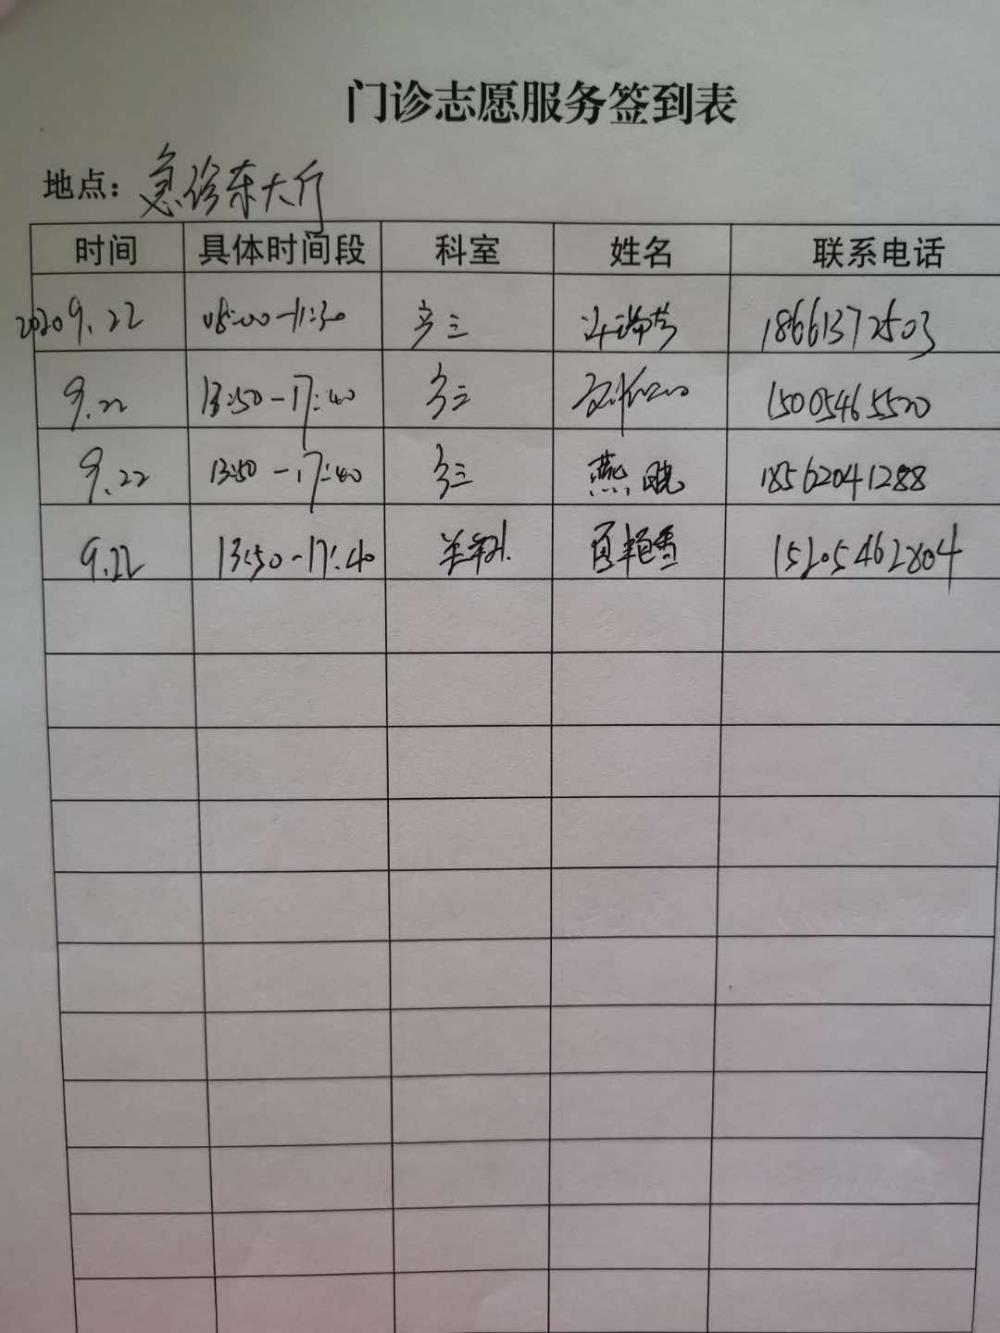 门诊志愿服务签到表
地点：急诊东大厅
时间 具体时间段 科室 姓名 联系电话
2020 9.22 08:00-11:30 18661372503
9.22 13:50-17:40 15005465520
9.22 13:50-17:40 燕晓 18562041288
9.22 13:50-17:40 15205462804